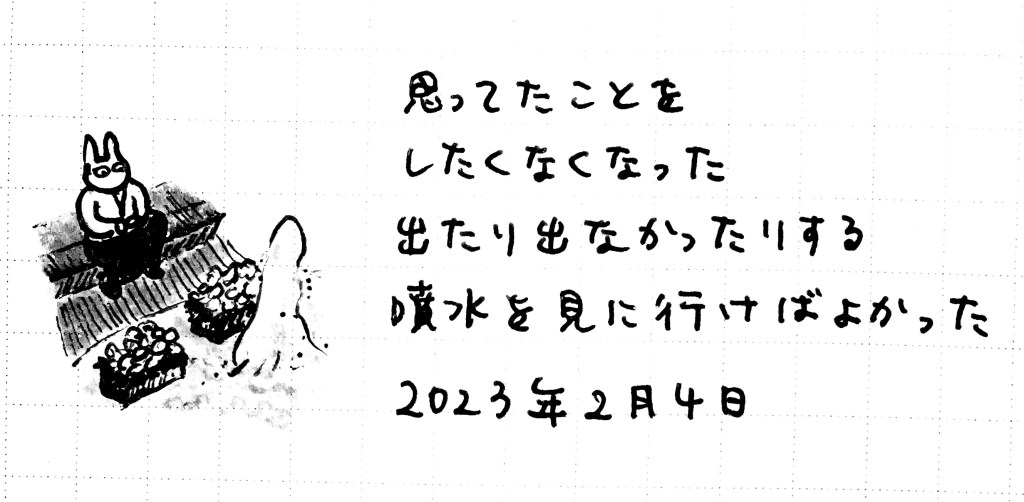 思ってたことを
したくなくなった
出たり出なかったりする
噴水を見に行けばよかった
2023年2月4日